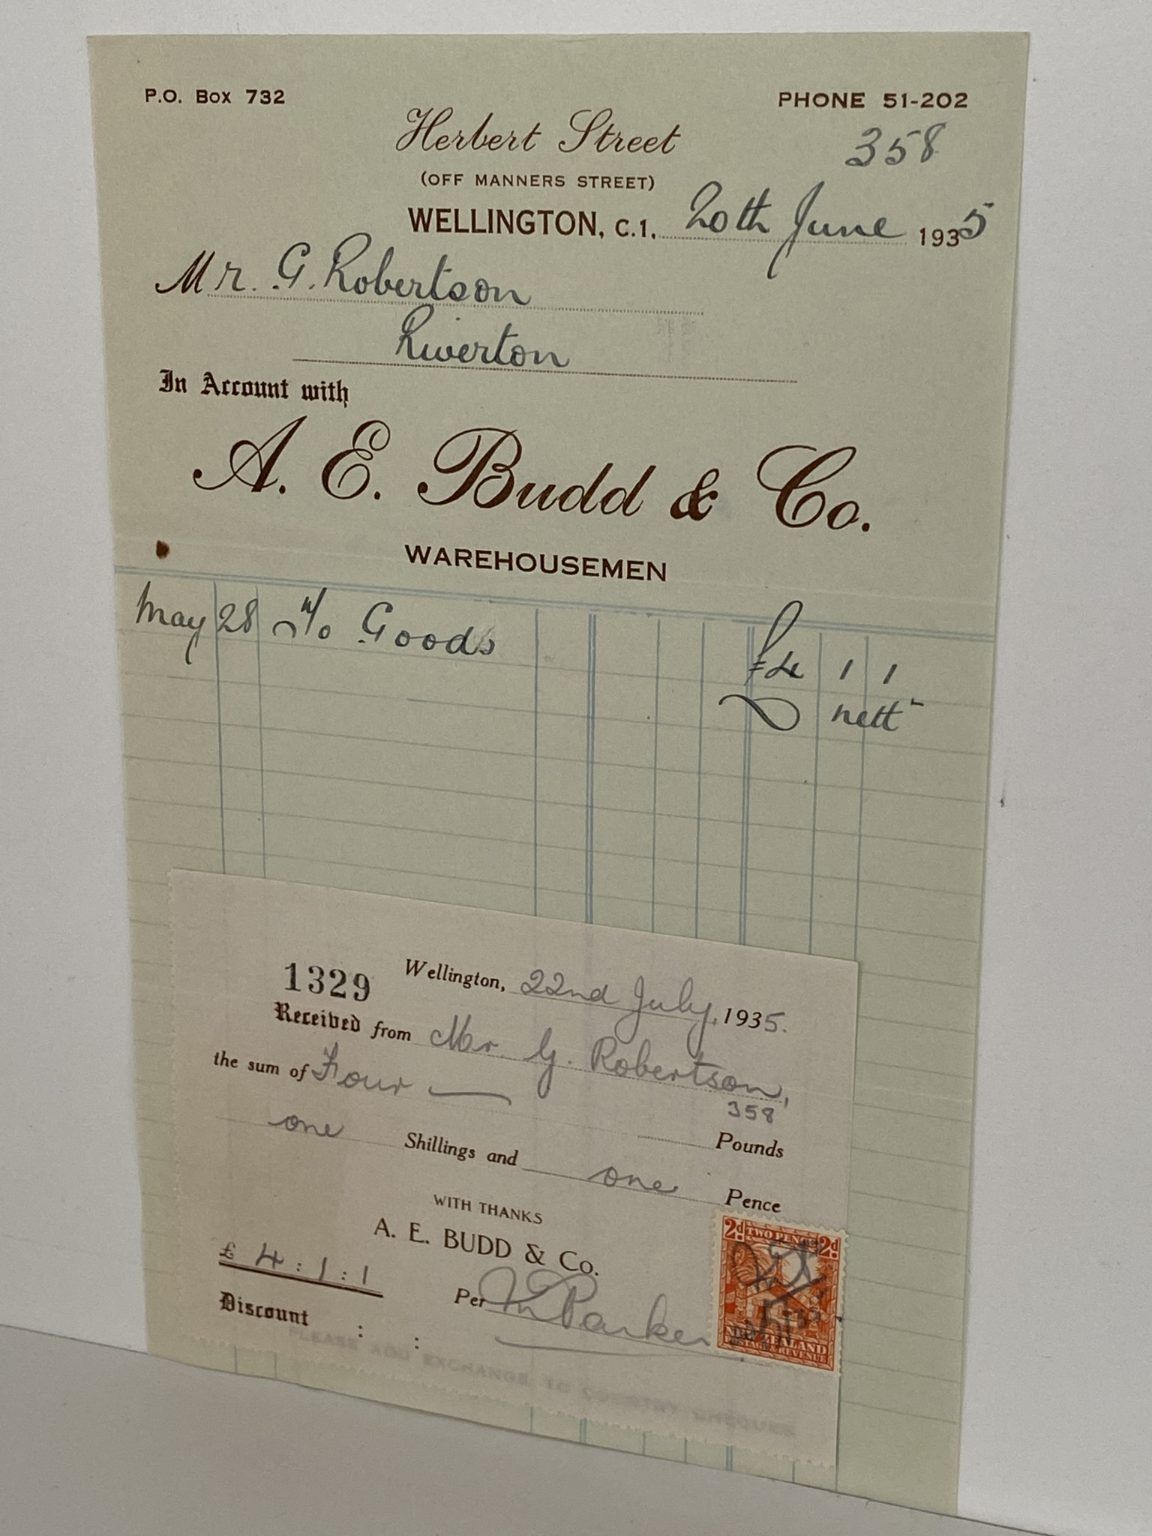 P.O. Box 732
PHONE 51-202
358
Herbert Street
(OFF MANNERS STREET)
WELLINGTON, C.1. 20th June 1935
Mr. G. Robertson
Riverton
In Account with
A. E. Budd & Co.
WAREHOUSEMEN
May 28 Goods £4 1 1
nett
1329
Wellington, 22nd July, 1935.
Received from Mr. G. Robertson,
358
the sum of Four Pounds
one Shillings and one Pence
WITH THANKS
A. E. BUDD & Co.
£ 4 : 1 : 1
Per Parker
Discount : :
PLEASE ADD EXCHANGE TO COUNTRY CHEQUES
2d TWO PENCE 2d
NEW ZEALAND
POSTAGE & REVENUE